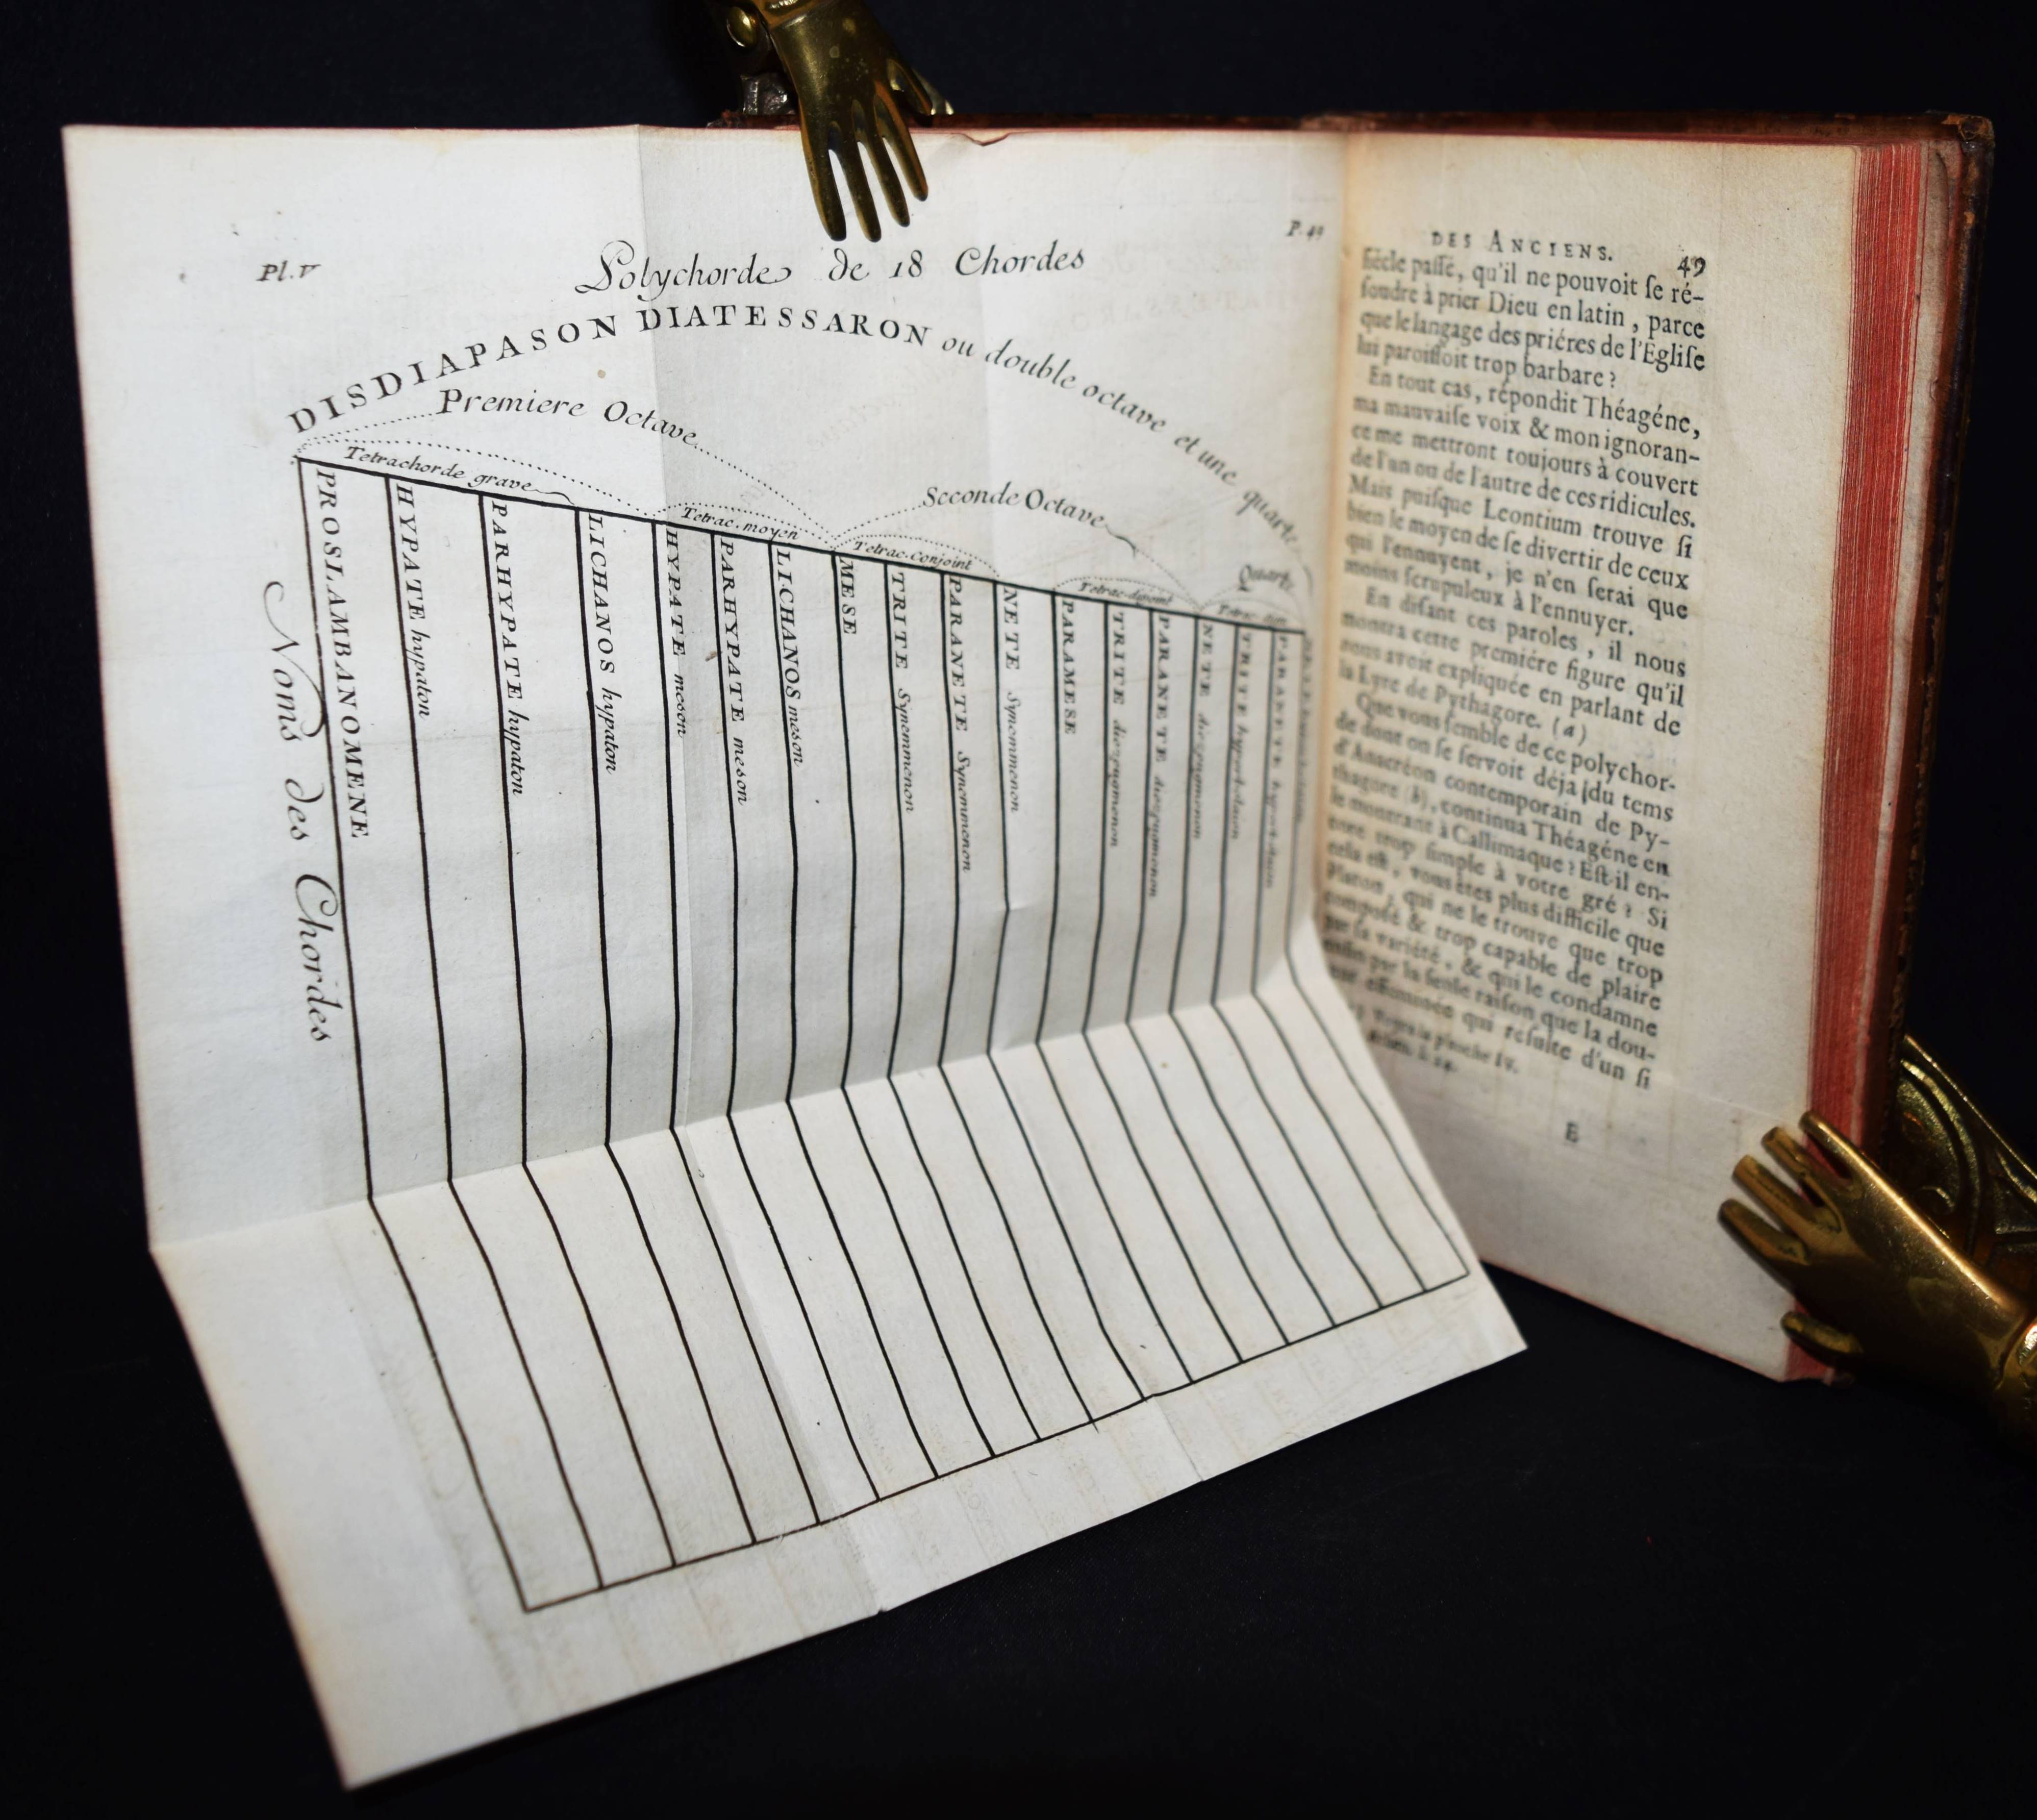 Pl. V
P. 49
Polychorde de 18 Chordes
DISDIAPASON DIATESSARON ou double octave et une quarte
Premiere Octave
Seconde Octave
Quarte
Tetrachorde grave
Tetrac. moyen
Tetrac. Conjoint
Tetrac. disjoint
Noms des Chordes
PROSLAMBANOMENE
HYPATE hypaton
PARHYPATE hypaton
LICHANOS hypaton
HYPATE meson
PARHYPATE meson
LICHANOS meson
MESE
TRITE Synemmenon
PARANETE Synemmenon
NETE Synemmenon
PARAMESE
TRITE diezeugmenon
PARANETE diezeugmenon
NETE diezeugmenon
TRITE
PARANETE
DES ANCIENS. 49
siécle passé, qu'il ne pouvoit se ré-
soudre à prier Dieu en latin, parce
que le langage des priéres de l'Eglise
lui paroissoit trop barbare?
En tout cas, répondit Théagéne,
ma mauvaise voix & mon ignoran-
ce me mettront toujours à couvert
de l'un ou de l'autre de ces ridicules.
Mais puisque Leontium trouve si
bien le moyen de se divertir de ceux
qui l'ennuyent, je n'en serai que
moins scrupuleux à l'ennuyer.
En disant ces paroles, il nous
montra cette premiére figure qu'il
nous avoit expliquée en parlant de
la Lyre de Pythagore. (a)
Que vous semble de ce polychor-
de dont on se servoit déja du tems
d'Anacréon contemporain de Py-
thagore (b), continua Théagéne en
le montrant à Callimaque? Est-il en-
core trop simple à votre gré? Si
cela est, vous êtes plus difficile que
Platon, qui ne le trouve que trop
composé & trop capable de plaire
par sa variété, & qui le condamne
enfin par la seule raison que la dou-
ceur efféminée qui resulte d'un si
Voyez la planche IV.
E